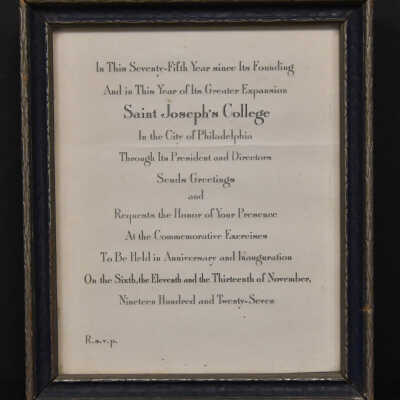 In This Seventy-Fifth Year since Its Founding
And in This Year of Its Greater Expansion
Saint Joseph's College
In the City of Philadelphia
Through Its President and Directors
Sends Greetings
and
Requests the Honor of Your Presence
At the Commemorative Exercises
To Be Held in Anniversary and Inauguration
On the Sixth, the Eleventh and the Thirteenth of November,
Nineteen Hundred and Twenty-Seven
R.s.v.p.